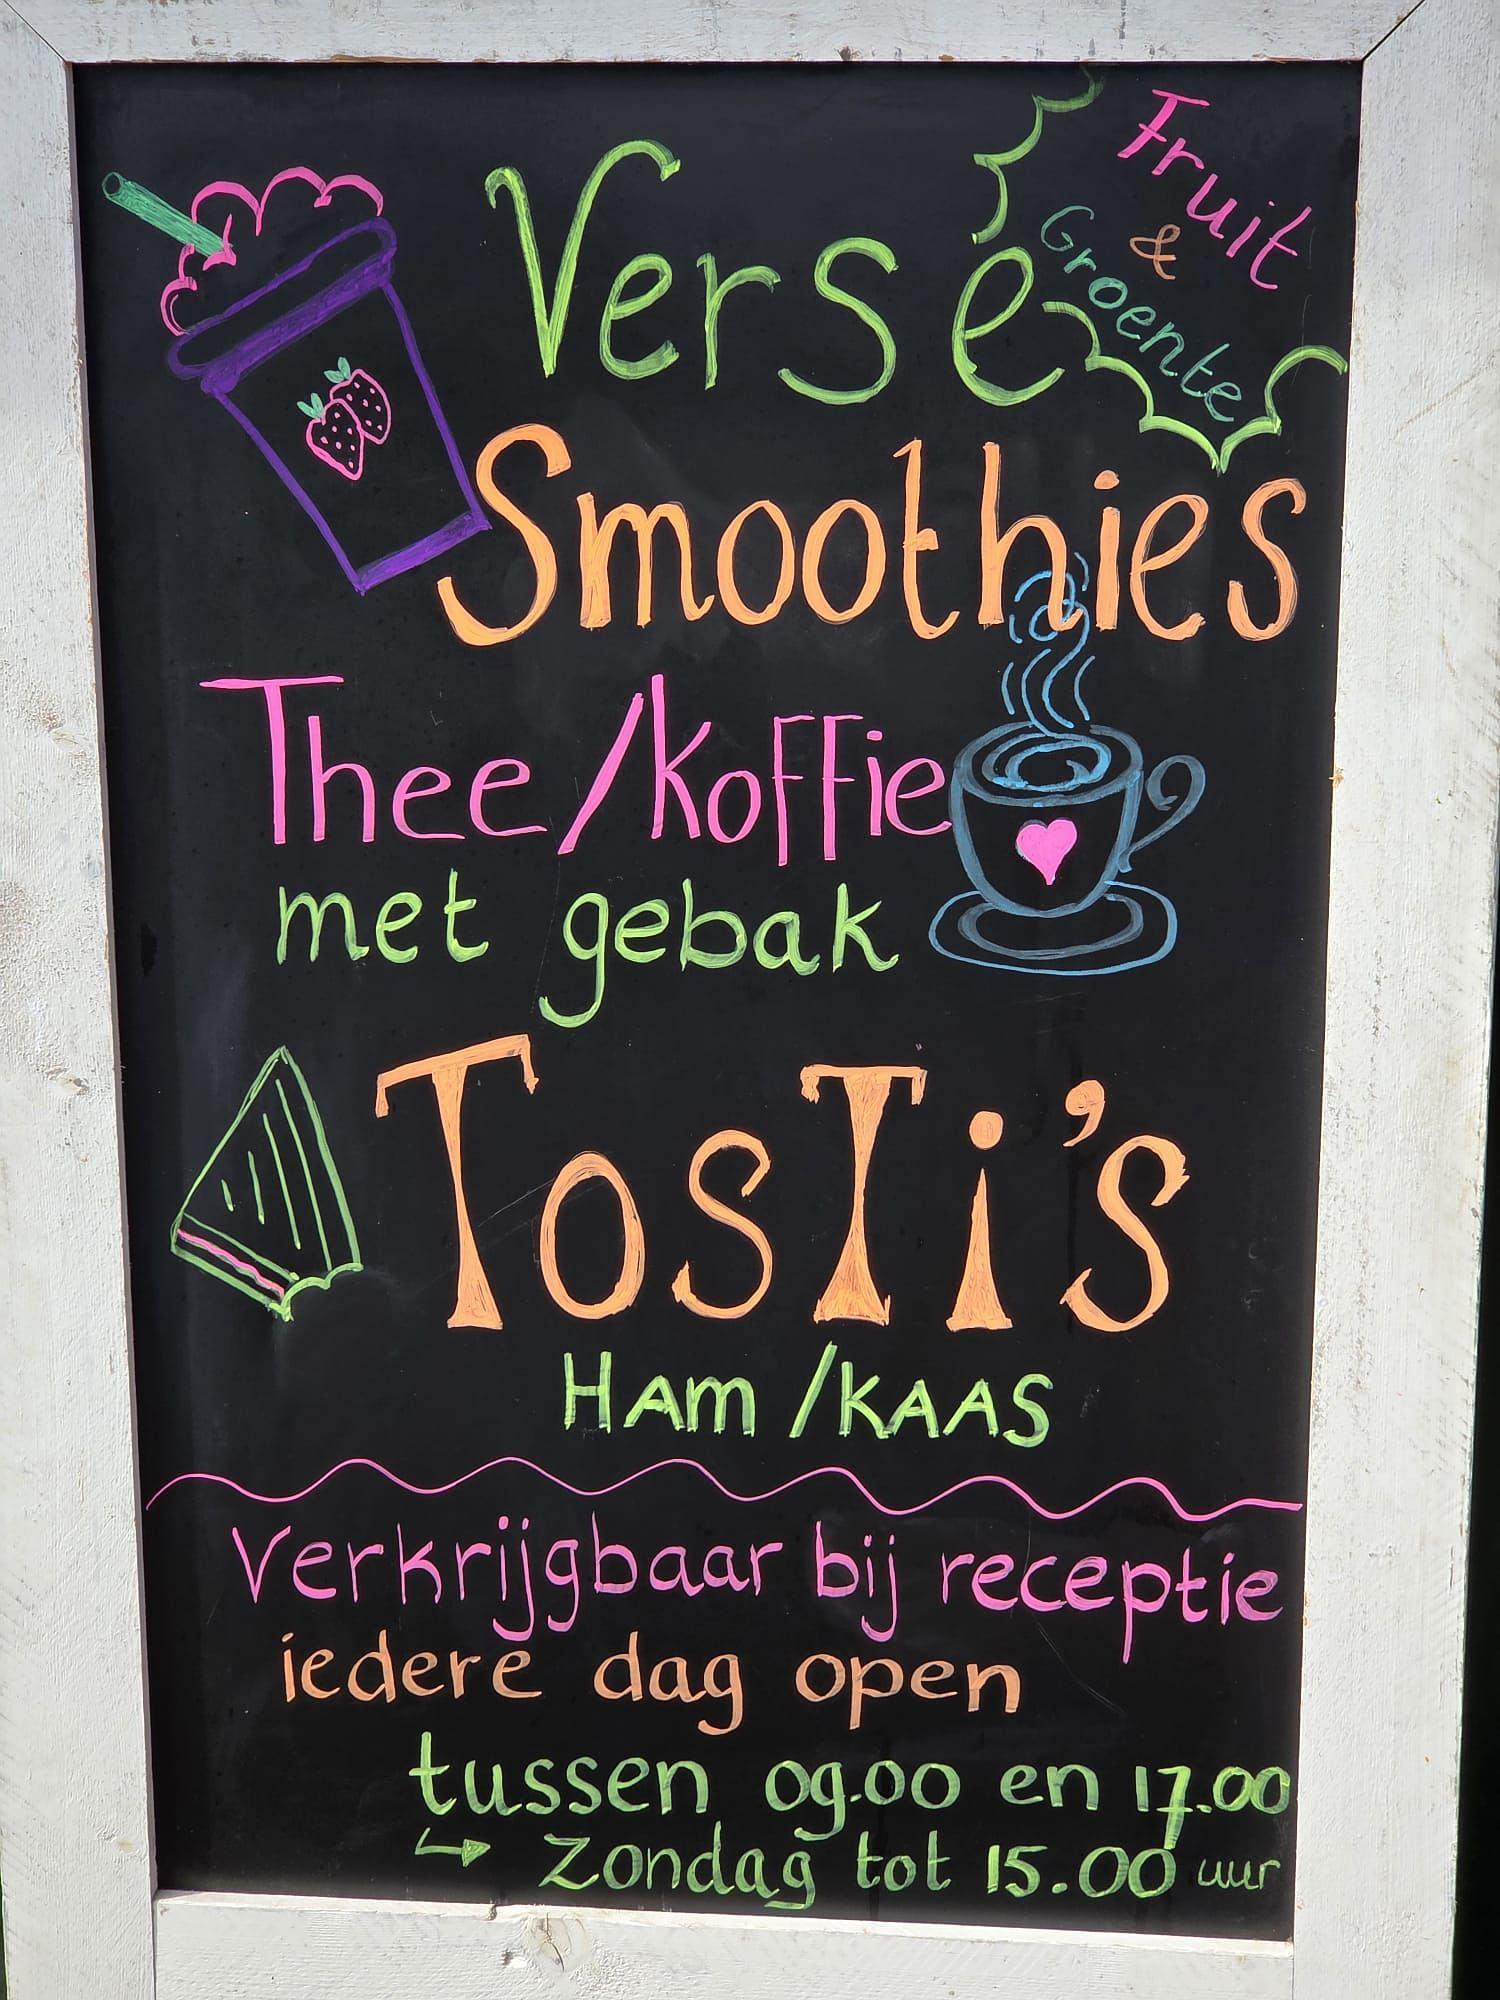 Fruit
&
Groente
Verse
Smoothies
Thee/koffie
met gebak
TosTi's
HAm/KAAS
Verkrijgbaar bij receptie
iedere dag open
tussen 09.00 en 17.00
↳ Zondag tot 15.00 uur